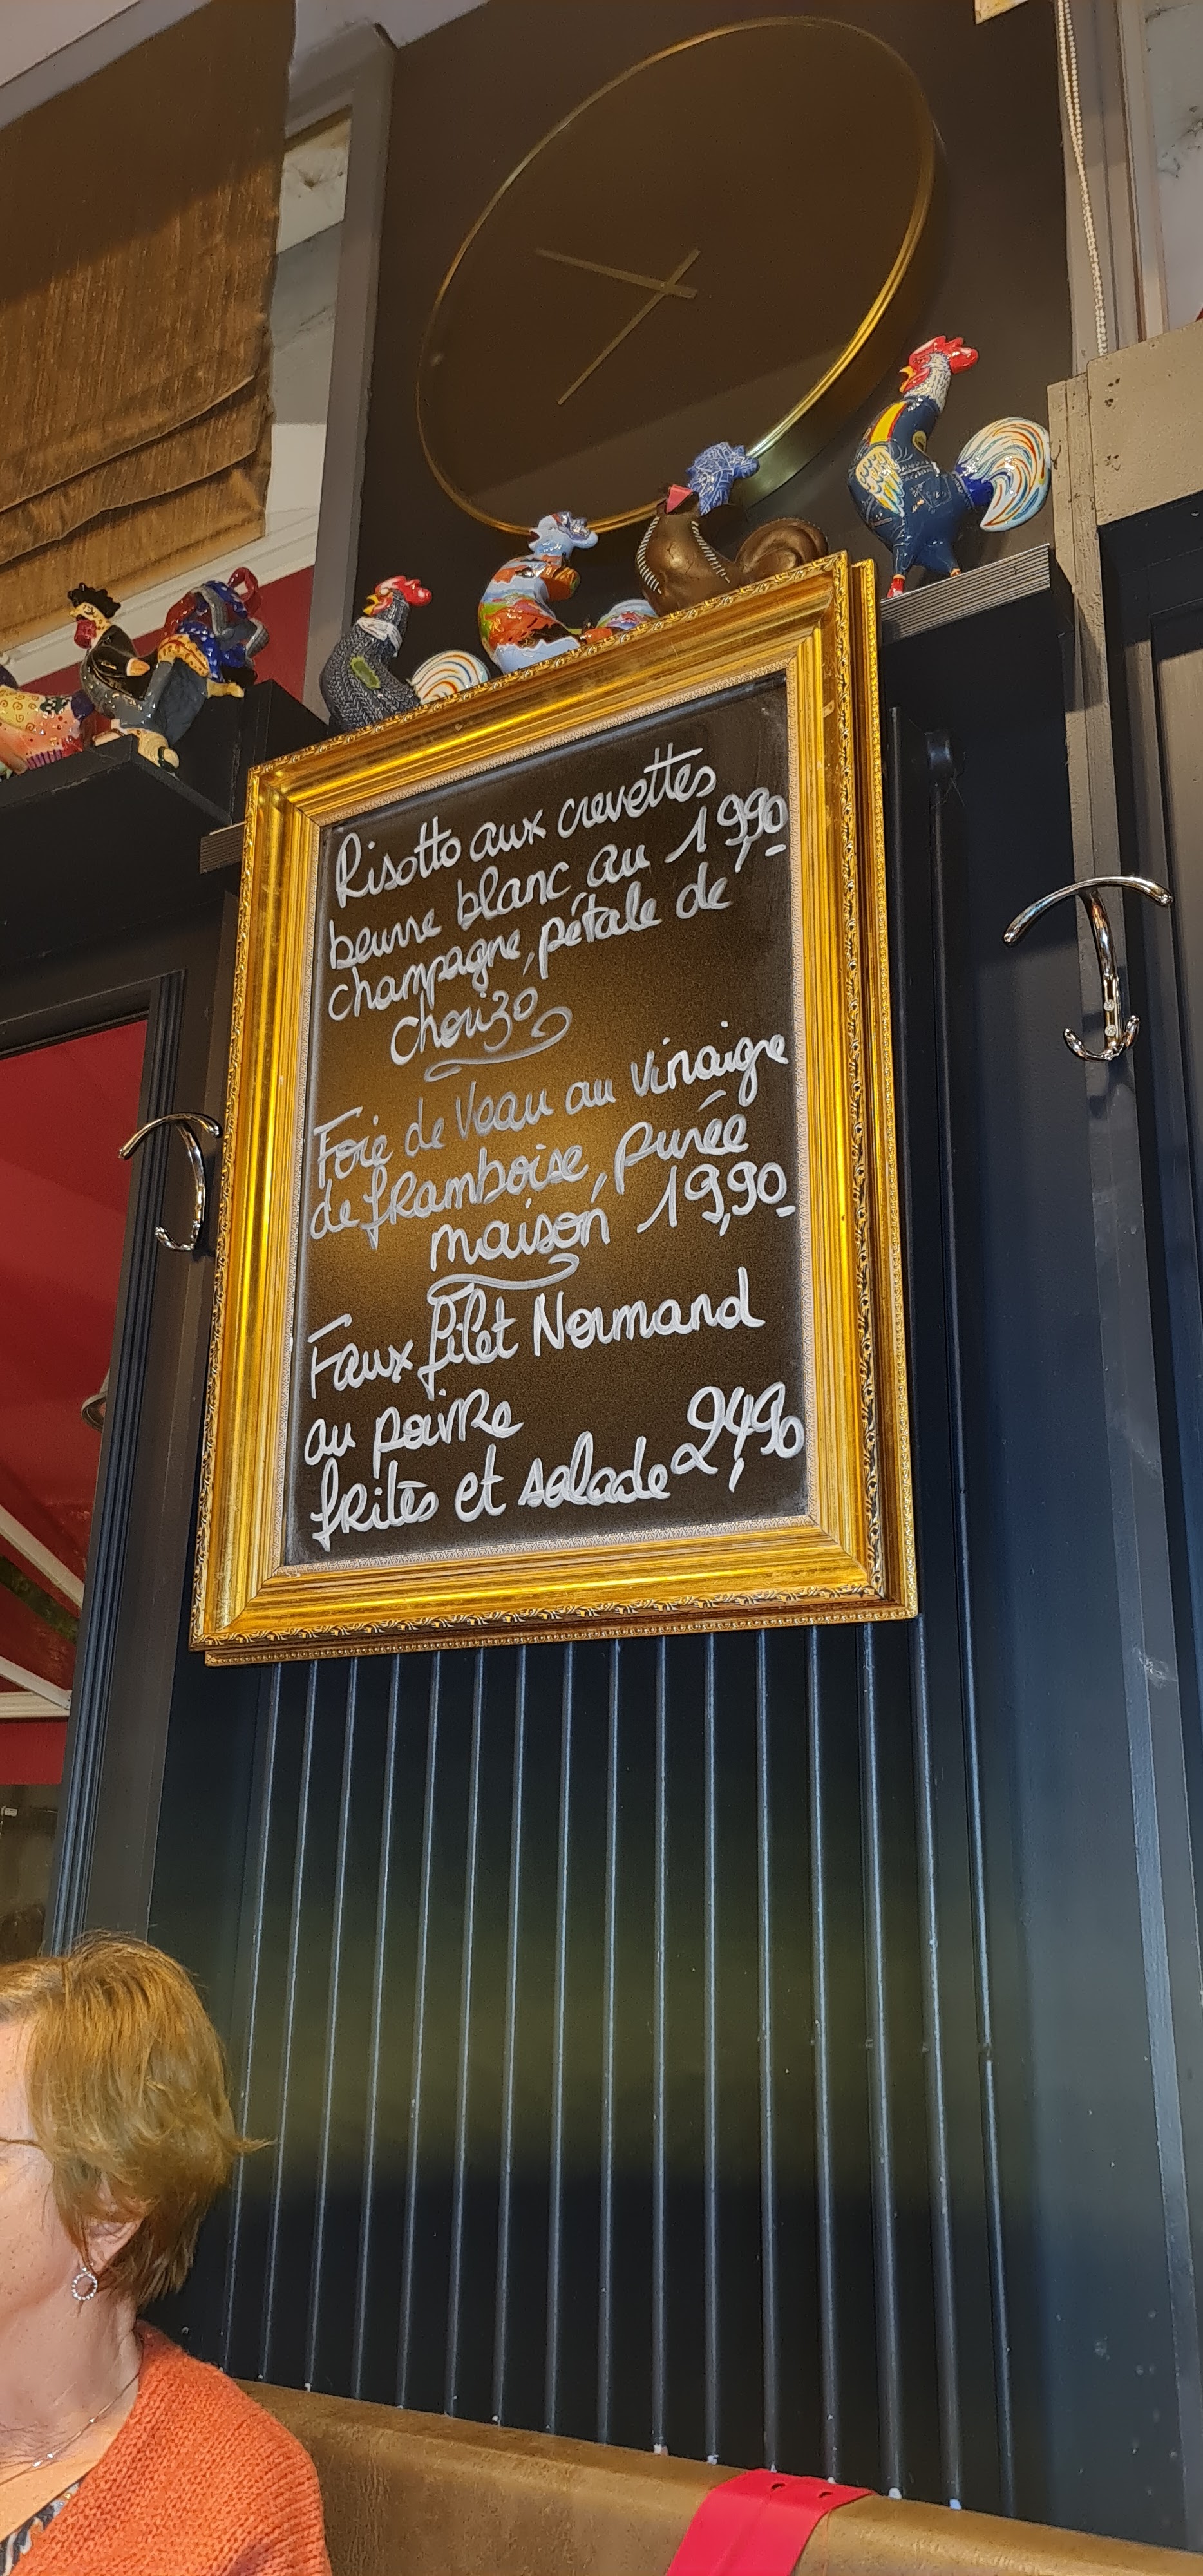 Risotto aux crevettes
beurre blanc au 19,90
champagne, pétale de
chorizo
Foie de Veau au vinaigre
de framboise, purée
maison 19,90
Faux filet Normand
au poivre
frites et salade 24,90